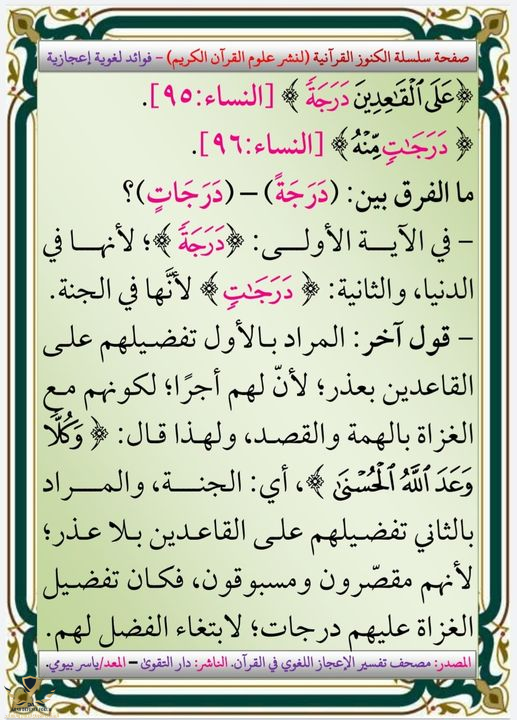 صفحة سلسلة الكنوز القرآنية (لنشر علوم القرآن الكريم) – فوائد لغوية إعجازية
﴿عَلَى ٱلۡقَٰعِدِينَ دَرَجَةٗ ﴾ [النساء:٩٥].
﴿ دَرَجَٰتٖ مِّنۡهُ﴾ [النساء:٩٦].
ما الفرق بين: (دَرَجَةً) – (دَرَجَاتٍ)؟
– في الآية الأولى: ﴿دَرَجَةٗ ﴾؛ لأنها في
الدنيا، والثانية: ﴿ دَرَجَٰتٖ ﴾ لأنَّها في الجنة.
– قول آخر: المراد بالأول تفضيلهم على
القاعدين بعذر؛ لأنّ لهم أجرًا؛ لكونهم مع
الغزاة بالهمة والقصد، ولهذا قال: ﴿ وَكُلّٗا
وَعَدَ ٱللَّهُ ٱلۡحُسۡنَىٰ ﴾، أي: الجنة، والمراد
بالثاني تفضيلهم على القاعدين بلا عذر؛
لأنهم مقصّرون ومسبوقون، فكان تفضيل
الغزاة عليهم درجات؛ لابتغاء الفضل لهم.
المصدر: مصحف تفسير الإعجاز اللغوي في القرآن. الناشر: دار التقوىٰ – المعد/ياسر بيومي.